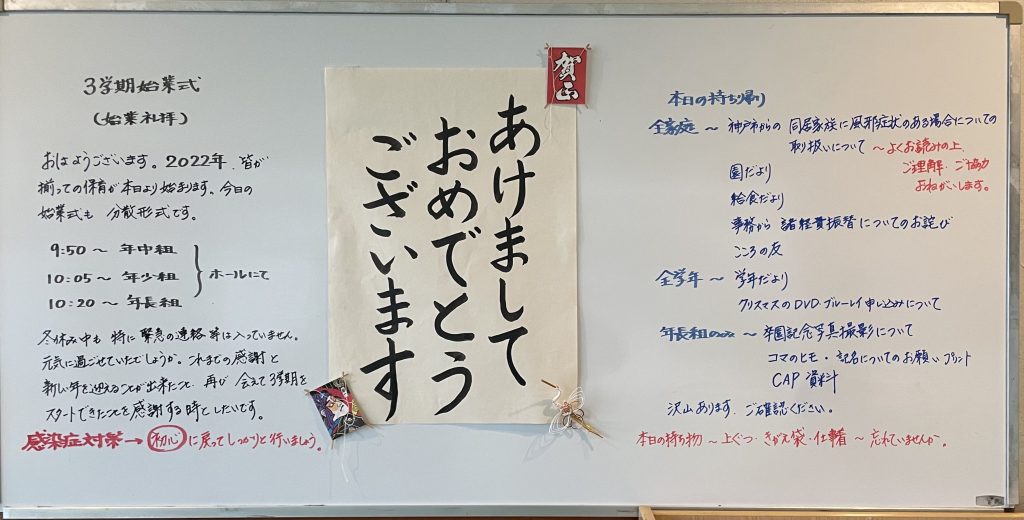 3学期始業式
(始業礼拝)
おはようございます。2022年、皆が
揃っての保育が本日より始まります。今日の
始業式も 分散形式です。
9:50～ 年中組
10:05～ 年少組
10:20～ 年長組
ホールにて
冬休み中も 特に緊急の連絡等は入っていません。
元気に過ごせていたでしょうか。これまでの感謝と
新しい年を迎えることが出来たこと、再び 会えて3学期を
スタートできたことを感謝する時としたいです。
感染症対策→初心に戻ってしっかりと行いましょう。
賀正
あけまして
おめでとう
ございます
本日の持ち帰り
全家庭～神戸市からの 同居家族に風邪症状のある場合についての
取り扱いについて～よくお読みの上、
ご理解・ご協力
おねがいします。
園だより
給食だより
事務から 諸経費振替についてのお詫び
こころの友
全学年～学年だより
クリスマスのDVD・ブルーレイ申し込みについて
年長組のみ～卒園記念写真撮影について
コマのヒモ・記名についてのお願いプリント
CAP資料
沢山あります。ご確認ください。
本日の持ち物～上ぐつ・きがえ袋・仕事着～忘れていませんか。